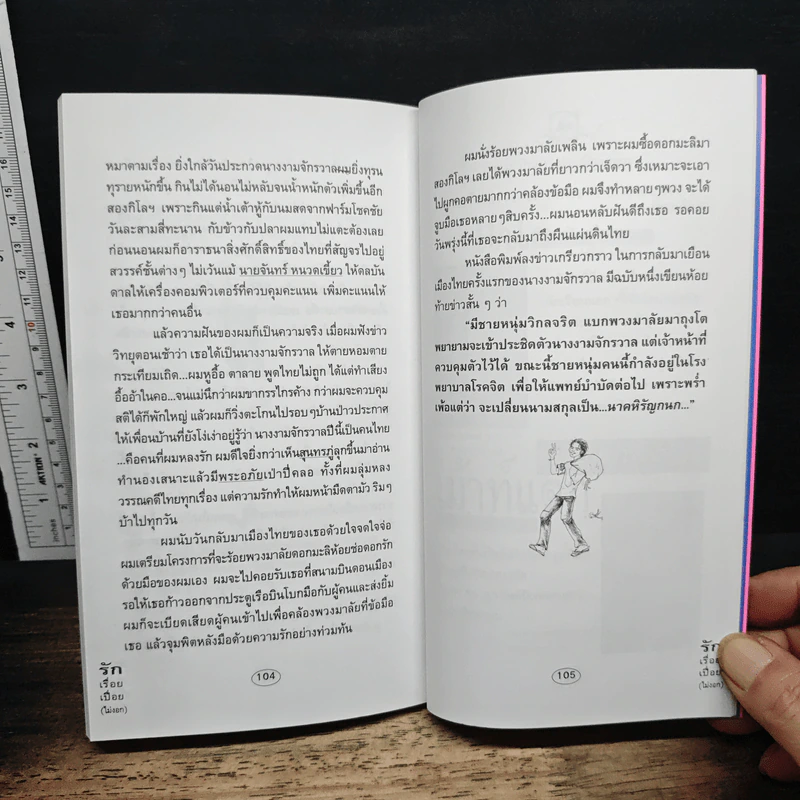 หมาตามเรื่อง ยิ่งใกล้วันประกวดนางงามจักรวาลผมยิ่งทุรน
ทุรายหนักขึ้น กินไม่ได้นอนไม่หลับจนน้ำหนักตัวเพิ่มขึ้นอีก
สองกิโลฯ เพราะกินแต่น้ำเต้าหู้กับนมสดจากฟาร์มโชคชัย
วันละสามสี่ทะนาน กับข้าวกับปลาผมแทบไม่แตะต้องเลย
ก่อนนอนผมก็อาราธนาสิ่งศักดิ์สิทธิ์ของไทยที่สัญจรไปอยู่
สวรรค์ชั้นต่างๆ ไม่เว้นแม้ นายจันทร์ หนวดเขี้ยว ให้ดลบัน
ดาลให้เครื่องคอมพิวเตอร์ที่ควบคุมคะแนน เพิ่มคะแนนให้
เธอมากกว่าคนอื่น
แล้วความฝันของผมก็เป็นความจริง เมื่อผมฟังข่าว
วิทยุตอนเช้าว่า เธอได้เป็นนางงามจักรวาล ให้ตายหอมตาย
กระเทียมเถิด...ผมหูอื้อ ตาลาย พูดไทยไม่ถูก ได้แต่ทำเสียง
อื้ออ้าในคอ...จนแม่นึกว่าผมขากรรไกรค้าง กว่าผมจะควบคุม
สติได้ก็พักใหญ่ แล้วผมก็วิ่งตะโกนไปรอบๆบ้านป่าวประกาศ
ให้เพื่อนบ้านที่ยังโง่เง่าอยู่รู้ว่า นางงามจักรวาลปีนี้เป็นคนไทย
...คือคนที่ผมหลงรัก ผมดีใจยิ่งกว่าเห็นสุนทรภู่ลุกขึ้นมาอ่าน
ทำนองเสนาะแล้วมีพระอภัยเป่าปี่คลอ ทั้งที่ผมลุ่มหลง
วรรณคดีไทยทุกเรื่อง แต่ความรักทำให้ผมหน้ามืดตามัว ริมๆ
บ้าไปทุกวัน
ผมนับวันกลับมาเมืองไทยของเธอด้วยใจจดใจจ่อ
ผมเตรียมโครงการที่จะร้อยพวงมาลัยดอกมะลิห้อยช่อดอกรัก
ด้วยมือของผมเอง ผมจะไปคอยรับเธอที่สนามบินดอนเมือง
รอให้เธอก้าวออกจากประตูเรือบินโบกมือกับผู้คนและส่งยิ้ม
ผมก็จะเบียดเสียดผู้คนเข้าไปเพื่อคล้องพวงมาลัยที่ข้อมือ
เธอ แล้วจุมพิตหลังมือด้วยความรักอย่างท่วมท้น
รัก
เรื่อย
เปื่อย
(ไม่งอก)
104
ผมนั่งร้อยพวงมาลัยเพลิน เพราะผมซื้อดอกมะลิมา
สองกิโลฯ เลยได้พวงมาลัยที่ยาวกว่าเจ็ดวา ซึ่งเหมาะจะเอา
ไปผูกคอตายมากกว่าคล้องข้อมือ ผมจึงทำหลายๆพวง จะได้
จูบมือเธอหลายๆสิบครั้ง...ผมนอนหลับฝันดีถึงเธอ รอคอย
วันพรุ่งนี้ที่เธอจะกลับมาถึงผืนแผ่นดินไทย
หนังสือพิมพ์ลงข่าวเกรียวกราว ในการกลับมาเยือน
เมืองไทยครั้งแรกของนางงามจักรวาล มีฉบับหนึ่งเขียนห้อย
ท้ายข่าวสั้น ๆ ว่า
“มีชายหนุ่มวิกลจริต แบกพวงมาลัยมาถุงโต
พยายามจะเข้าประชิดตัวนางงามจักรวาล แต่เจ้าหน้าที่
ควบคุมตัวไว้ได้ ขณะนี้ชายหนุ่มคนนี้กำลังอยู่ในโรง
พยาบาลโรคจิต เพื่อให้แพทย์บำบัดต่อไป เพราะพร่ำ
เพ้อแต่ว่า จะเปลี่ยนนามสกุลเป็น...นาคหิรัญกนก...”
105
รัก
เรื่อย
เปื่อย
(ไม่งอก)